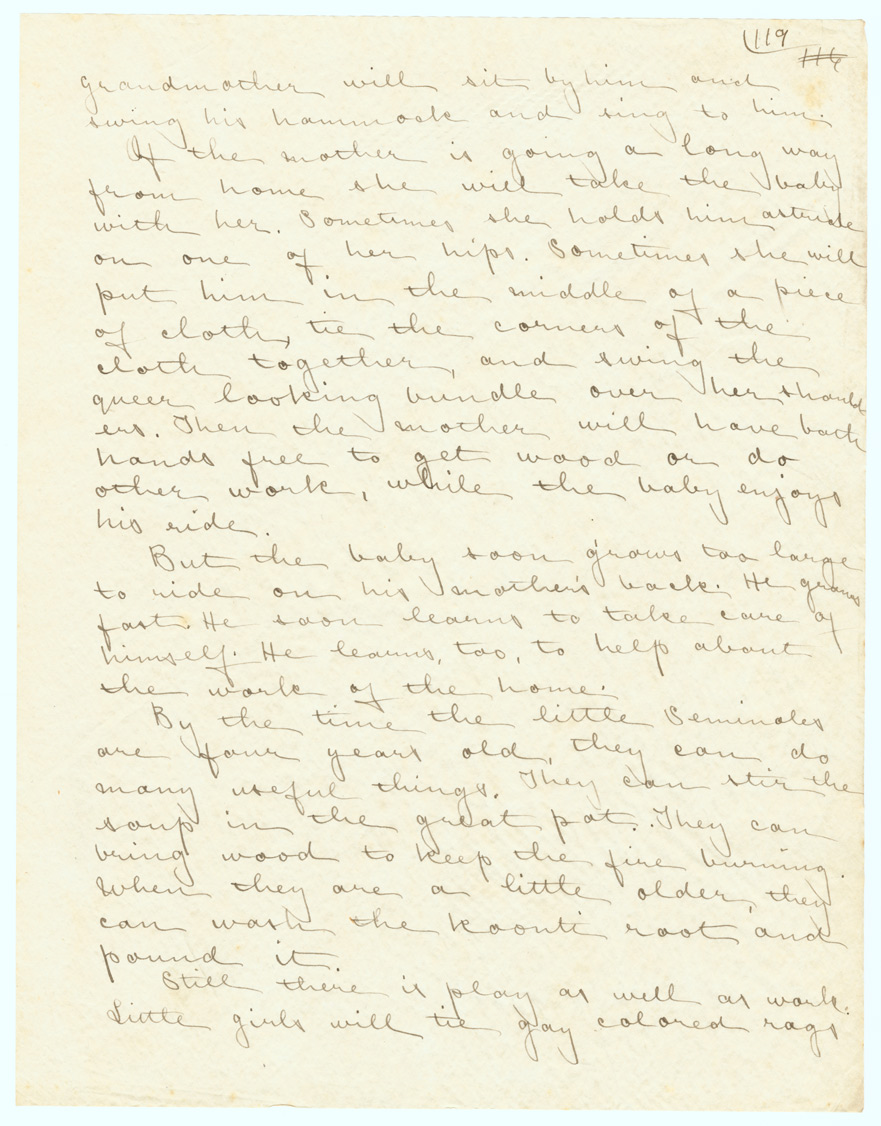 119
116
grandmother will sit by him and
swing his hammock and sing to him.
If the mother is going a long way
from home she will take the baby
with her. Sometimes she holds him astride
on one of her hips. Sometimes she will
put him in the middle of a piece
of cloth, tie the corners of the
cloth together, and swing the
queer looking bundle over her should
ers. Then the mother will have both
hands free to get wood or do
other work, while the baby enjoys
his ride.
But the baby soon grows too large
to ride on his mother's back. He grows
fast. He soon learns to take care of
himself. He learns, too, to help about
the work of the home.
By the time the little Seminoles
are four years old, they can do
many useful things. They can stir the
soup in the great pot. They can
bring wood to keep the fire burning.
When they are a little older, they
can wash the koonti root and
pound it.
Still there is play as well as work.
Little girls will tie gay colored rags